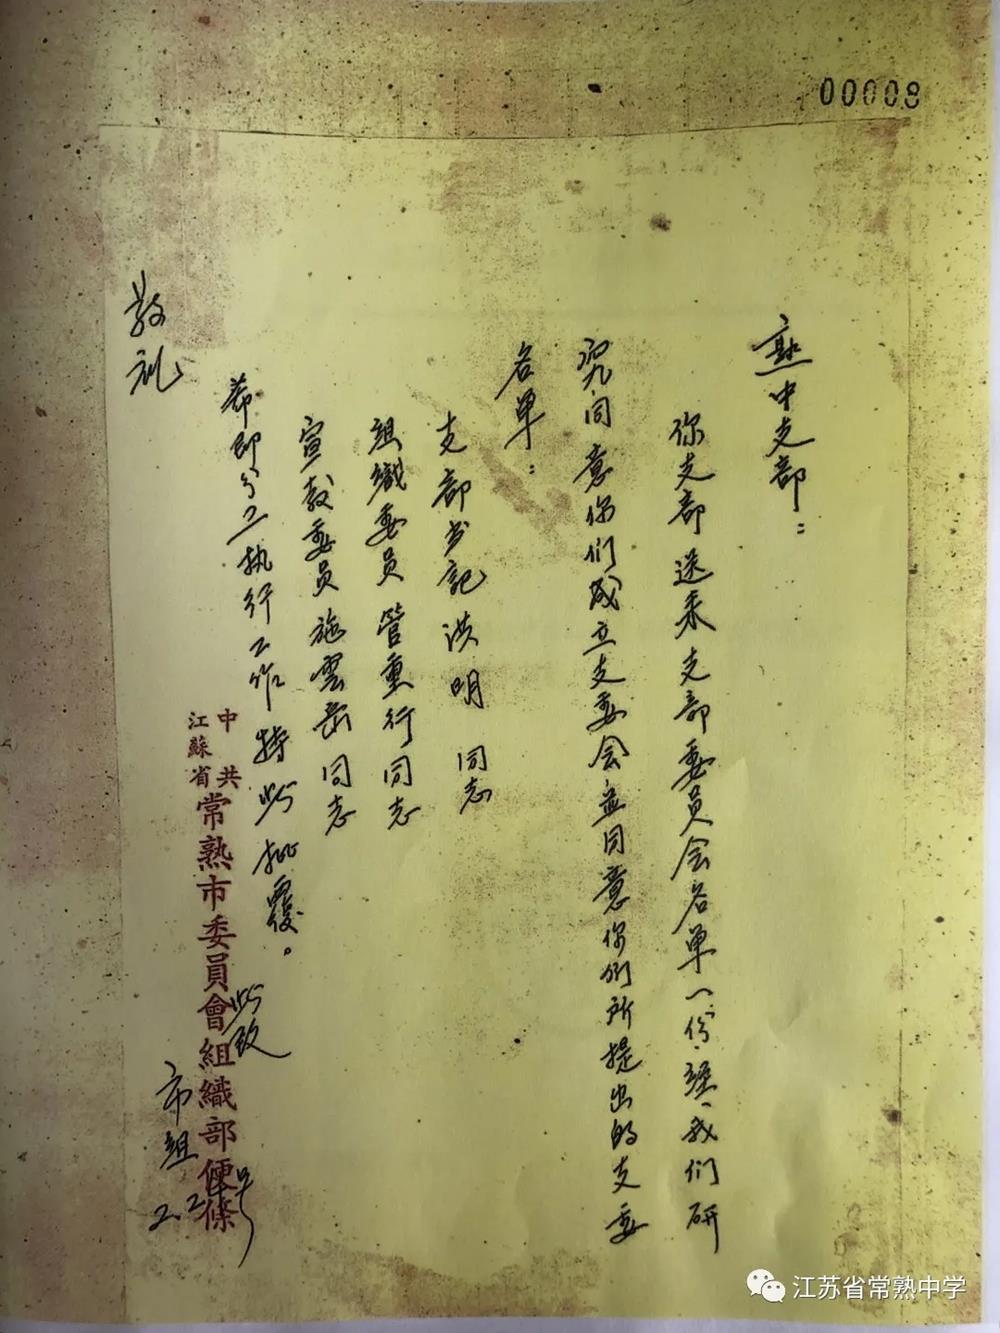 00008
熟中支部：
你支部送来支部委员会名单一份，经我们研
究同意你们成立支委会并同意你们所提出的支委
名单：
支部书记 洪明 同志
组織委员 管重行同志
宣教委员 施雲岳同志
希即分工执行工作 特此批覆。
此致
敬礼
市组
中共
江蘇省
常熟市委員會組織部便條
江苏省常熟中学